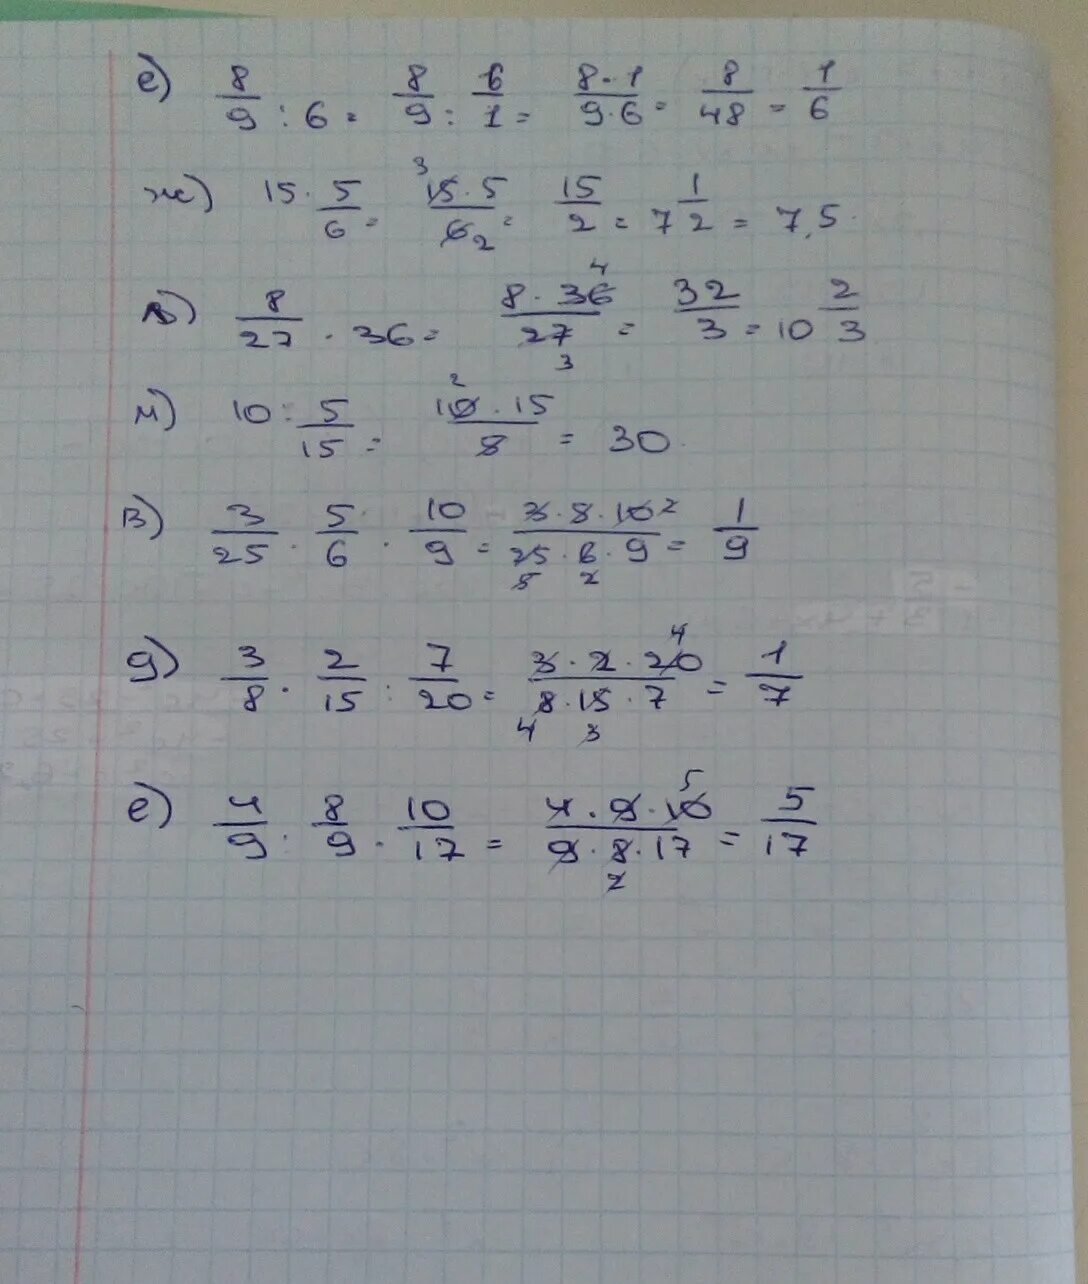 е) 8/9 : 6 = 8/9 : 6/1 = 8·1/9·6 = 8/48 = 1/6
ж) 15 · 5/6 = 15·5/6 = 15/2 = 7 1/2 = 7,5
8/27 · 36 = 8·36/27 = 32/3 = 10 2/3
м) 10 : 5/15 = 10·15/5 = 30
в) 3/25 · 5/6 · 10/9 = 3·5·10/25·6·9 = 1/9
д) 3/8 · 2/15 : 7/20 = 3·2·20/8·15·7 = 1/7
е) 4/9 : 8/9 · 10/17 = 4·9·10/9·8·17 = 5/17